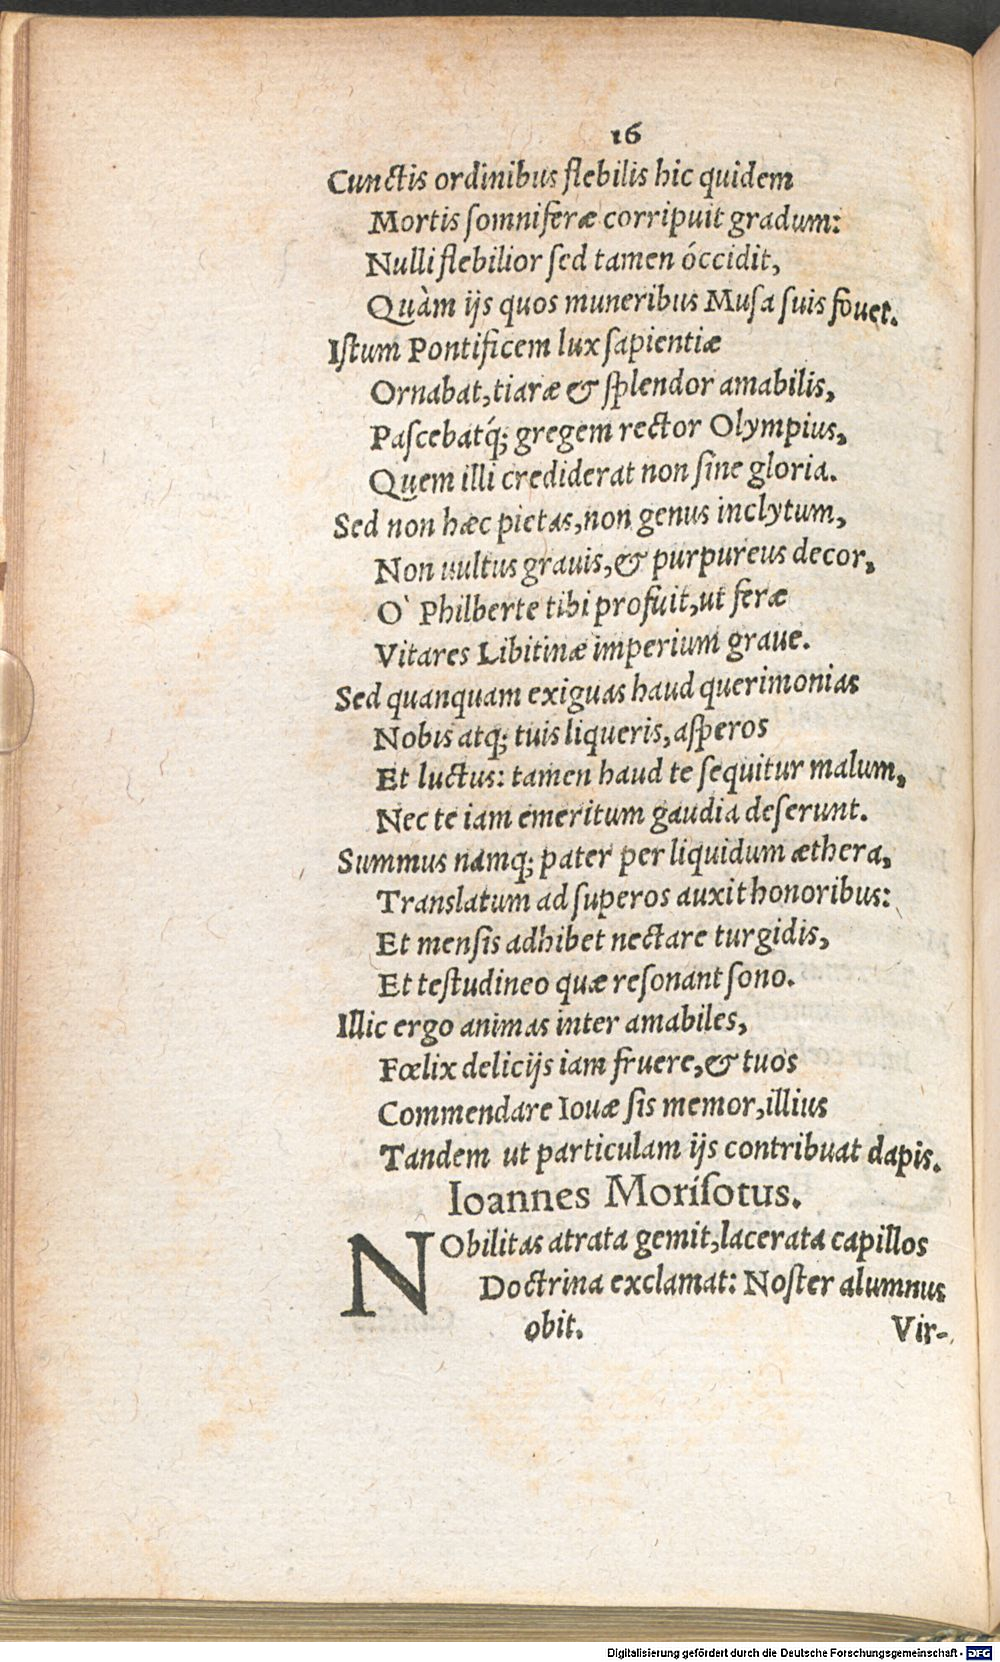 16
Cunctis ordinibus flebilis hic quidem
Mortis ſomniferæ corripuit gradum:
Nulli flebilior ſed tamen óccidit,
Quàm ijs quos muneribus Muſa ſuis fouet.
Iſtum Pontificem lux ſapientiæ
Ornabat, tiaræ & ſplendor amabilis,
Paſcebatq́; gregem rector Olympius,
Quem illi crediderat non ſine gloria.
Sed non hæc pietas, non genus inclytum,
Non uultus grauis, & purpureus decor,
O` Philberte tibi profuit, ut feræ
Vitares Libitinæ imperium graue.
Sed quanquam exiguas haud querimonias
Nobis atq; tuis liqueris, aſperos
Et luctus: tamen haud te ſequitur malum,
Nec te iam emeritum gaudia deſerunt.
Summus namq; pater per liquidum æthera,
Translatum ad ſuperos auxit honoribus:
Et menſis adhibet nectare turgidis,
Et teſtudineo quæ reſonant ſono.
Illic ergo animas inter amabiles,
Fœlix delicijs iam fruere, & tuos
Commendare Iouæ ſis memor, illius
Tandem ut particulam ijs contribuat dapis.
Ioannes Moriſotus.
NObilitas atrata gemit, lacerata capillos
Doctrina exclamat: Noſter alumnus
obit. Vir-
Digitalisierung gefördert durch die Deutsche Forschungsgemeinschaft - DFG